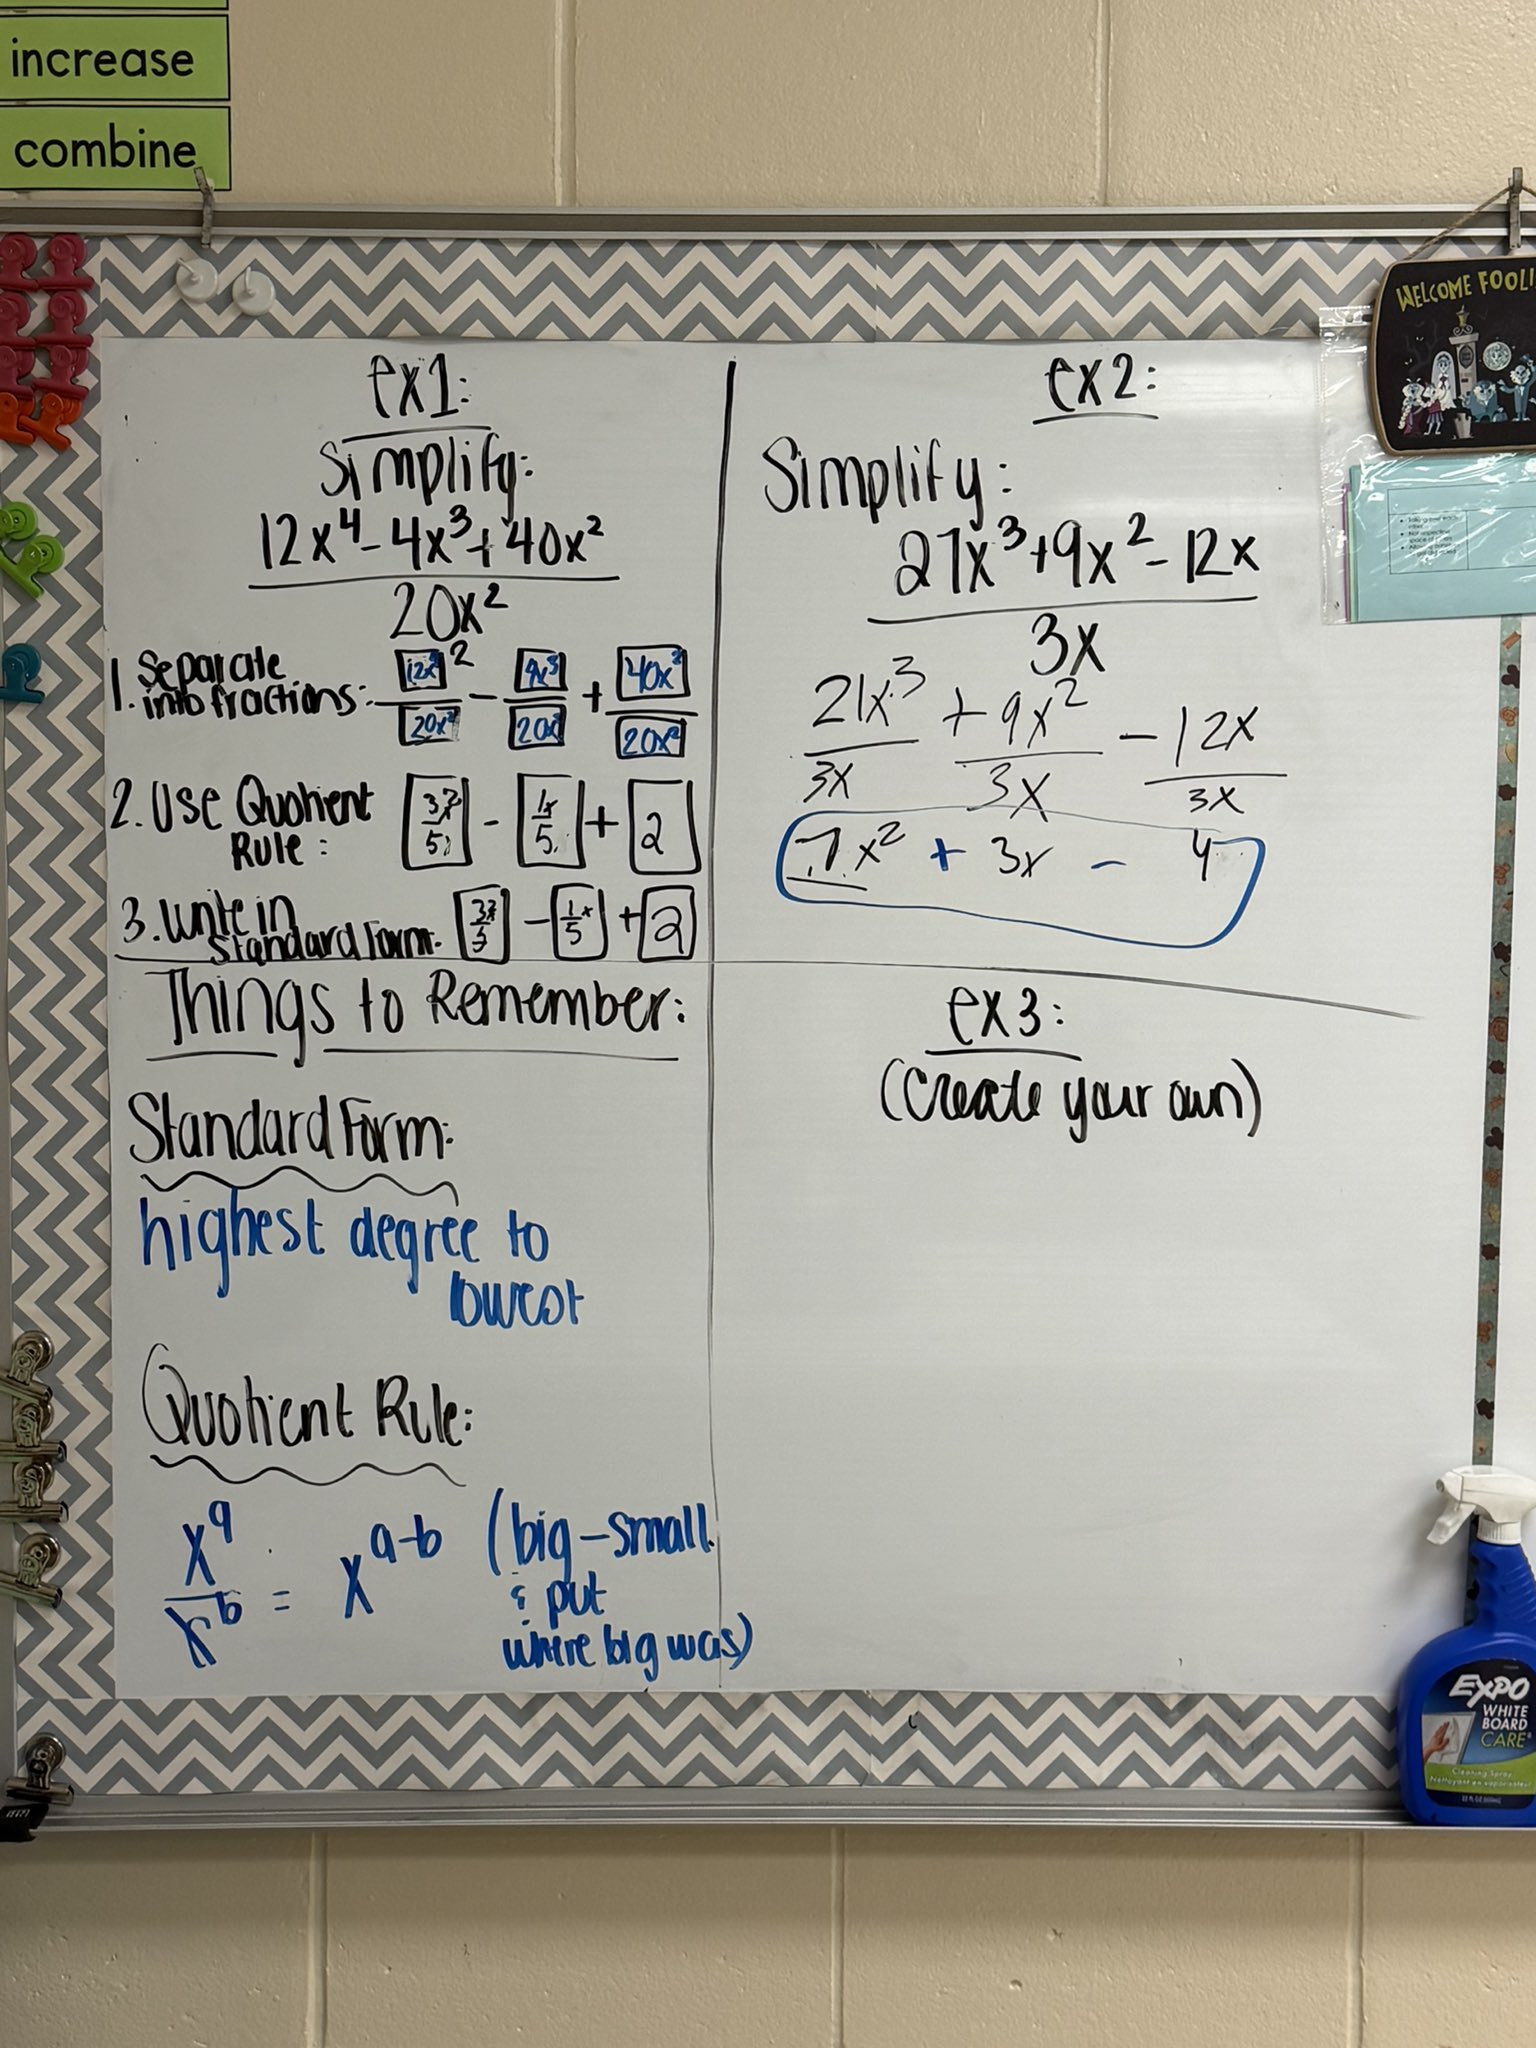 increase
combine
WELCOME FOOLI
ex1:
Simplify:
12x⁴ - 4x³ + 40x²
20x²
1. Separate
into fractions:
12x² 2 - 4x³ + 40x²
20x² 20x² 20x²
2. Use Quotient
Rule:
3x² - 1x + 2
5 5
3. Write in
Standard Form:
3x² - 1x + 2
5 5
ex2:
Simplify:
21x³ + 9x² - 12x
3x
21x³ + 9x² - 12x
3x 3x 3x
7x² + 3x - 4
Things to Remember:
Standard Form:
highest degree to
lowest
Quotient Rule:
xᵃ
xᵇ = xᵃ⁻ᵇ
(big - small
& put
where big was)
ex3:
(Create your own)
EXPO
WHITE
BOARD
CARE
Cleaning Spray